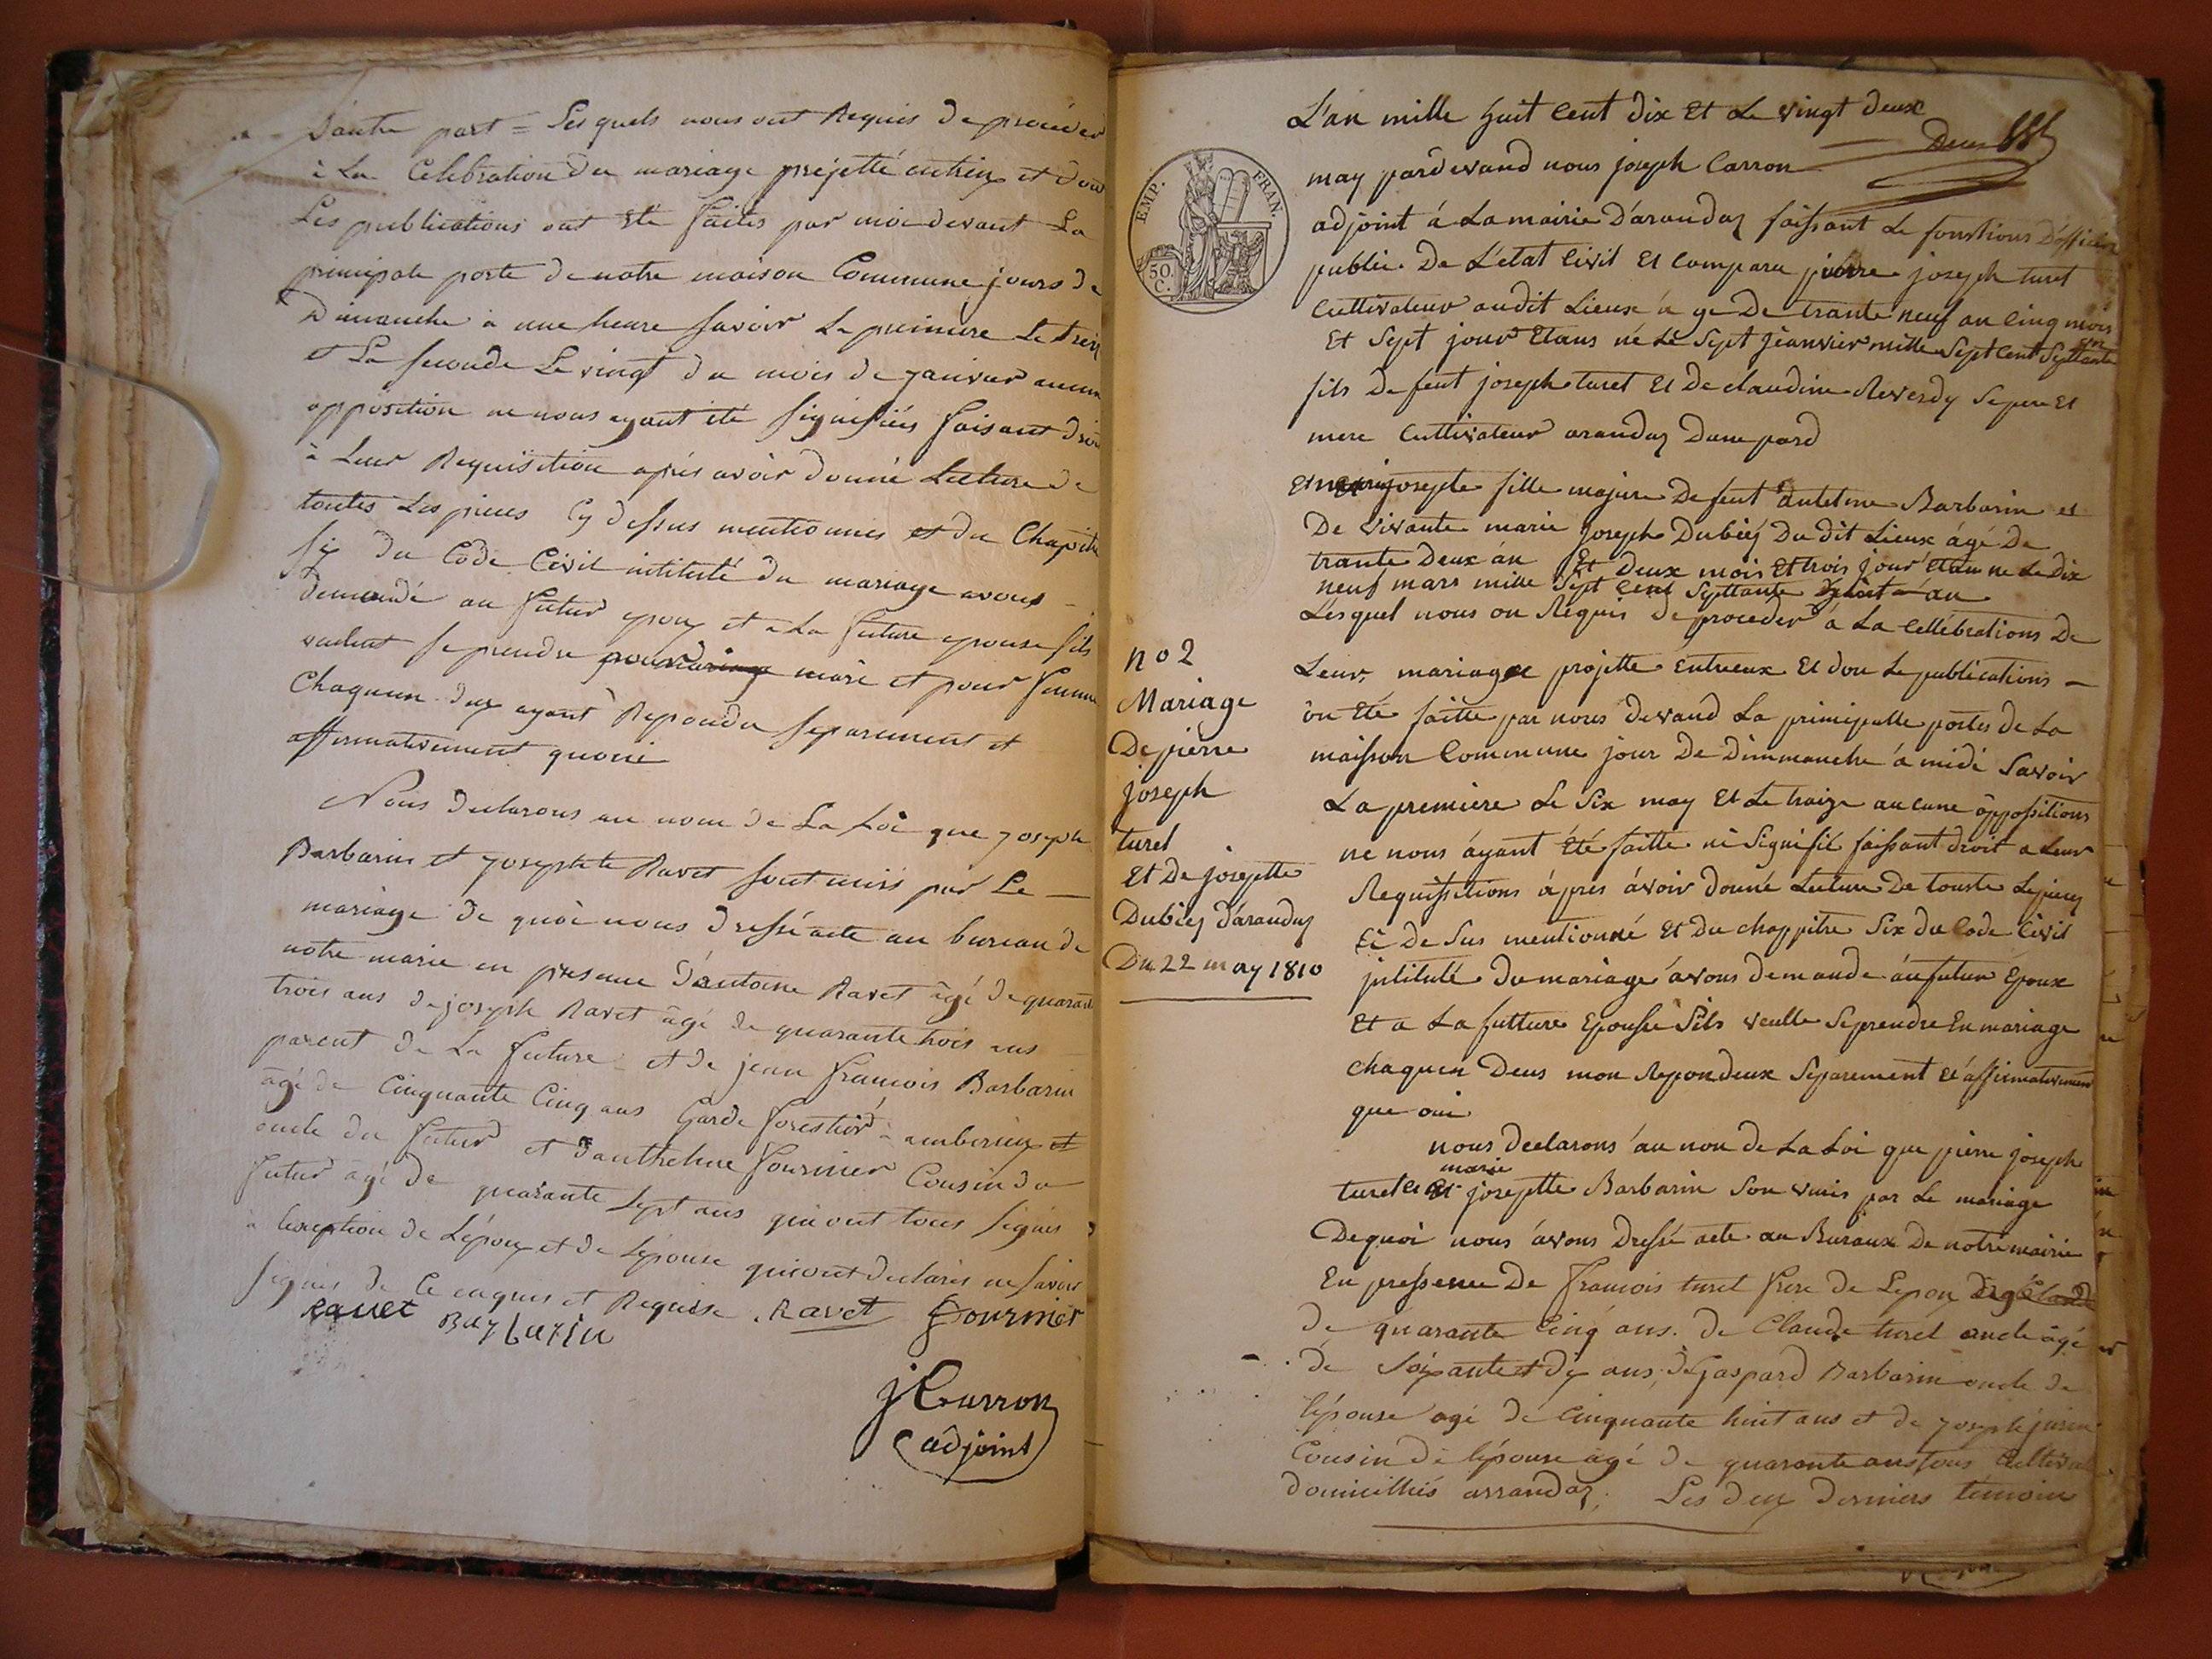 D'autre part = Lesquels nous ont Requis De proceder
à La Celebration du mariage projetté entreux et dont
Les publications ont été faites par moi devant La
principale porte de notre maison Commune jours de
Dimanche à une heure savoir La premiere Le treize
et La seconde Le vingt du mois de janvier aucune
opposition ne nous ayant été signifiées faisant droit
à Leur Requisition après avoir donné Lecture de
toutes Les pieces Cy dessus mentionnes et du Chapitre
six du Code Civil intitulé du mariage avons
demandé au futur epoux et a La future epouse sils
veulent se prendre pour mari et pour femme
Chaqun deux ayant Repondu separement et
affirmativement quoui
Nous declarons au nom de La Loi que joseph
Barbarin et josephte Ravet sont unis par Le
mariage de quoi nous dressé acte au bureau de
notre marie en presence d'antoine Ravet âgé de quarante
trois ans de joseph Ravet âgé de quarante trois ans
parent de La future et de jean francois Barbarin
âgé de Cinquante Cinq ans Garde forestier à amberieux et
oncle du futur et d'anthelme fournier Cousin du
futur âgé de quarante sept ans qui ont tous signés
à L'exception de L'époux et de L'épouse qui ont declarés ne savoir
signés de Ce enquis et Requise . Ravet fournier
ravet Barbarin
J Carron
adjoint
L'an mille huit Cent dix Et Le vingt deux
Deux
may pardevand nous joseph Carron
EMP. FRAN.
50. C.
adjoint á La mairie D'arandaz faissant Le fonstions D'officier
public De L'état Civil Et Compara pierre joseph turet
Cultivateur audit Lieux á ge De trante neuf an Cinq mois
Et Sept jour Etans né Le Sept jeanvier mille Sept Cent Septtante
fils De feut joseph turet Et De claudine Reverdy Se pere Et
mere Cultivateur arandaz Dune pard
Et marie josepte fille majure De feut antelme Barbarin et
De vivante marie joseph Dubiéz Du dit Lieux âgé De
trante Deux án Et Deux mois Et trois jour Etan ne Le Dix
neuf mars mille Sept Cent Septtante huit án
Lesquel nous on Réquis De proceder á La Cellébrations De
Leur mariage projette Entreux Et dou Le publications
on Eté faitte par nous Devand La principalle portes De La
maisson Commune jour De Dimmanche á midi Savoir
La premiere Le Six may Et Le traize aucune oppossitions
ne nous áyant Été faitte ni Signifié faissant droit a Leur
Requissitions ápres ávoir Donné Lecture De touste Lepieces
Ci De Sus mentionné Et Du chappitre Six Du Code Civil
jntitulé Du mariage ávons demande áu futur Epoux
Et a La futture Epousse Sils veulle Se prendre En mariage
chaquen Deus mon Repondeux Séparement Et áffirmativement
que oui
nous Declarons áu non de La Loi que pierre joseph
turet Et marie josephtte Barbarin Son vnis par Le mariage
De quoi nous ávons Dressé acte au Buraux De notre mairie
En pressence De francois turet frere de Lepoux agé
de quarante Cinq ans. de Claude turet oncle âgé
de Soixante et dix ans, de Gaspard Barbarin oncle de
L'épouse agé de Cinquante huit ans et de joseph
Cousin de L'épouse agé de quarante ans tous
domicilliés arrandaz. Les deux derniers témoins
no 2
Mariage
De pierre
joseph
turet
Et De josephtte
Dubiez d'arandaz
Du 22 may 1810